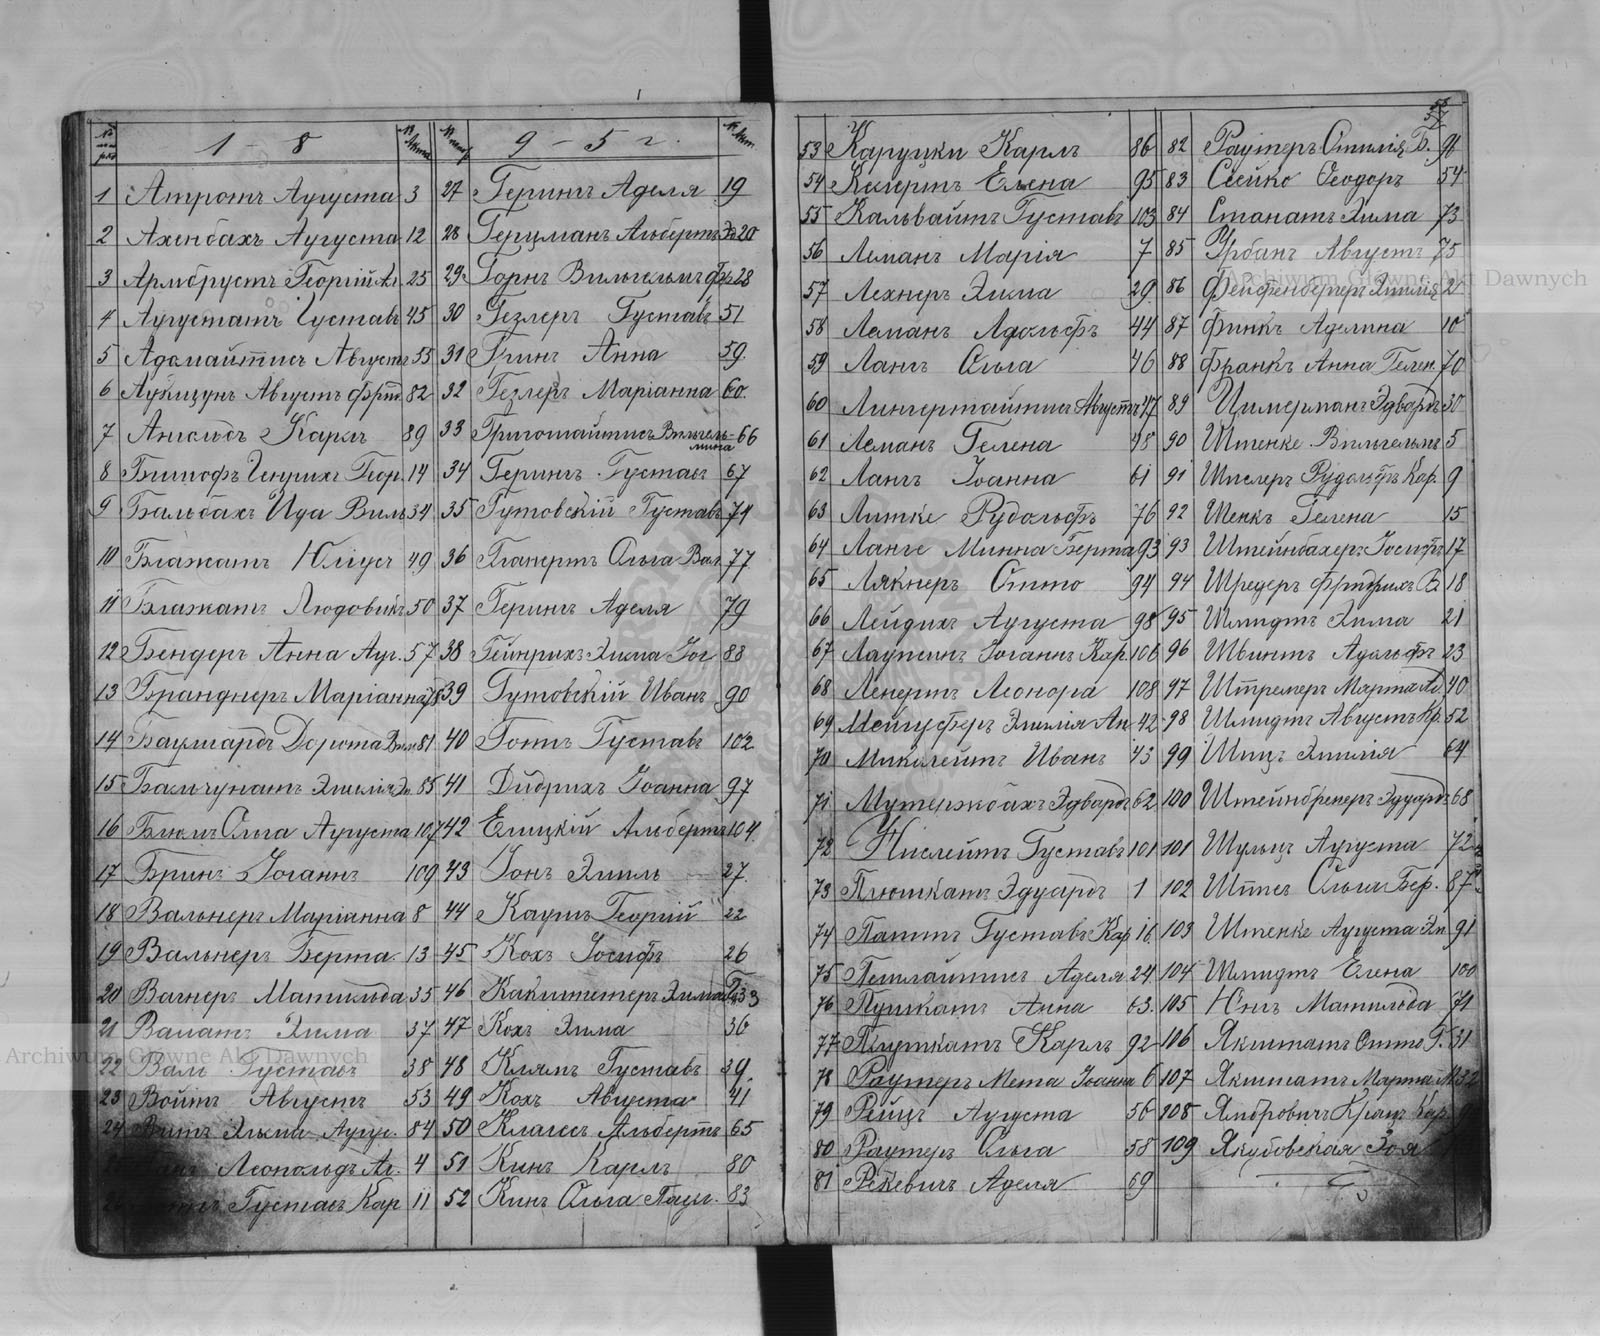 1 - 8
9 - 5 г.
1 Атротъ Аугуста 3
2 Ахенбахъ Аугуста 12
3 Армбрустъ Георгій Ал. 25
4 Аугустатъ Густавъ 45
5 Адомайтисъ Августъ 55
6 Августъ Фрид. 82
7 Карлъ 89
8 Генрихъ Геор. 14
9 Бальбахъ Ида Виль. 34
10 Блажатъ Юліусъ 49
11 Блажатъ Людовика 50
12 Бендеръ Анна Ауг. 57
13 Бранднеръ Маріанна 78
14 Баумгардъ Дорота Вил. 81
15 Балчунатъ Эмилія Эд. 85
16 Блюмъ Ольга Аугуста 107
17 Бринъ Іоганнъ 109
18 Вальнеръ Маріанна 8
19 Вальнеръ Берта 13
20 Вагнеръ Матильда 35
21 Валатъ Эмма 37
22 Валь Густавъ 38
23 Войтъ Августъ 53
24 Витъ Эльма Аугус. 84
Леопольдъ Ав. 4
Густавъ Кар 11
27 Герингъ Аделя 19
28 Герцманъ Альбертъ Эд. 20
29 Горнъ Вильгельмъ Фр. 28
30 Гезлеръ Густавъ 51
31 Гринъ Анна 59.
32 Гезлеръ Маріанна 60.
33 Григотайтисъ Вильгель-мина 66
34 Герингъ Густавъ 67
35 Гутовскій Густавъ 74
36 Гланертъ Ольга Вал. 77
37 Герингъ Аделя 79
38 Гейнрихъ Эмма Іог 88
39 Гутовскій Иванъ 90
40 Готъ Густавъ 102
41 Дидрихъ Іоанна 97
42 Елицкій Альбертъ 104
43 Іонъ Эмиль 27.
44 Каутъ Георгій 22
45 Кохъ Іосифъ 26
46 Эмма 33
47 Кохъ Эмма 36
48 Клямъ Густавъ 39.
49 Кохъ Августа 41
50 Клагесъ Альбертъ 65
51 Кинъ Карлъ 80
52 Кинъ Ольга Паул. 83
53 Карупки Карлъ 86
54 Елена 95
55 Кальвайтъ Густавъ 103
56 Леманъ Марія 7
57 Лехнеръ Эмма 29
58 Леманъ Адольфъ 44
59 Лангъ Ольга 46
60 Лингертайтисъ Августъ 47
61 Леманъ Гелена 48
62 Лангъ Іоанна 61
63 Литке Рудольфъ 76
64 Ланге Минна Берта 93
65 Лякнеръ Отто 94
66 Лейдихъ Аугуста 98
67 Іоганнъ Кар. 106
68 Ленертъ Леонора 108
69 Эмилія Ан. 42
70 Миколейтъ Иванъ 43
71 Мутерзбахъ Эдвардъ 62
72 Нислейтъ Густавъ 101
73 Плюшкатъ Эдуардъ 1
74 Густавъ Кар 16
75 Петлайтисъ Аделя 24
76 Пушкатъ Анна 63.
77 Плушкатъ Карлъ 92
78 Раутеръ Мета Іоанна 6
79 Рейцъ Аугуста 56
80 Раутеръ Ольга 58
81 Рекевичъ Аделя 69
82 Раутеръ Отилія Б. 96
83 Сейко Ѳеодоръ 54
84 Станатъ Эмма 73
85 Урбанъ Августъ 75
86 Фейфенбергеръ Эмилія 2
87 Финкъ Аделина 10
88 Франкъ Анна Гелен. 70
89 Цимерманъ Эдвардъ 30
90 Штенке Вильгельмъ 5
91 Шислеръ Рудольфъ Кар. 9
92 Шенкъ Гелена 15
93 Штейнбахеръ Іосифъ 17
94 Шредеръ Фридрихъ В. 18
95 Шмидтъ Эмма 21
96 Швинтъ Адольфъ 23
97 Штремеръ Марта 40
98 Шмидтъ Августъ Кр. 52
99 Шицъ Эмилія 64
100 Штейнбренеръ Эдуардъ 68
101 Шульцъ Аугуста 72
102 Ольга Бер. 87
103 Штенке Аугуста Эм. 91
104 Шмидтъ Елена 100
105 Матильда 71
106 Якштатъ Отто Г. 31
107 Якштатъ Марта М. 32
108 Ямбровичъ Кар.
109 Якубовская Зоя
Archiwum Główne Akt Dawnych
Archiwum Główne Akt Dawnych